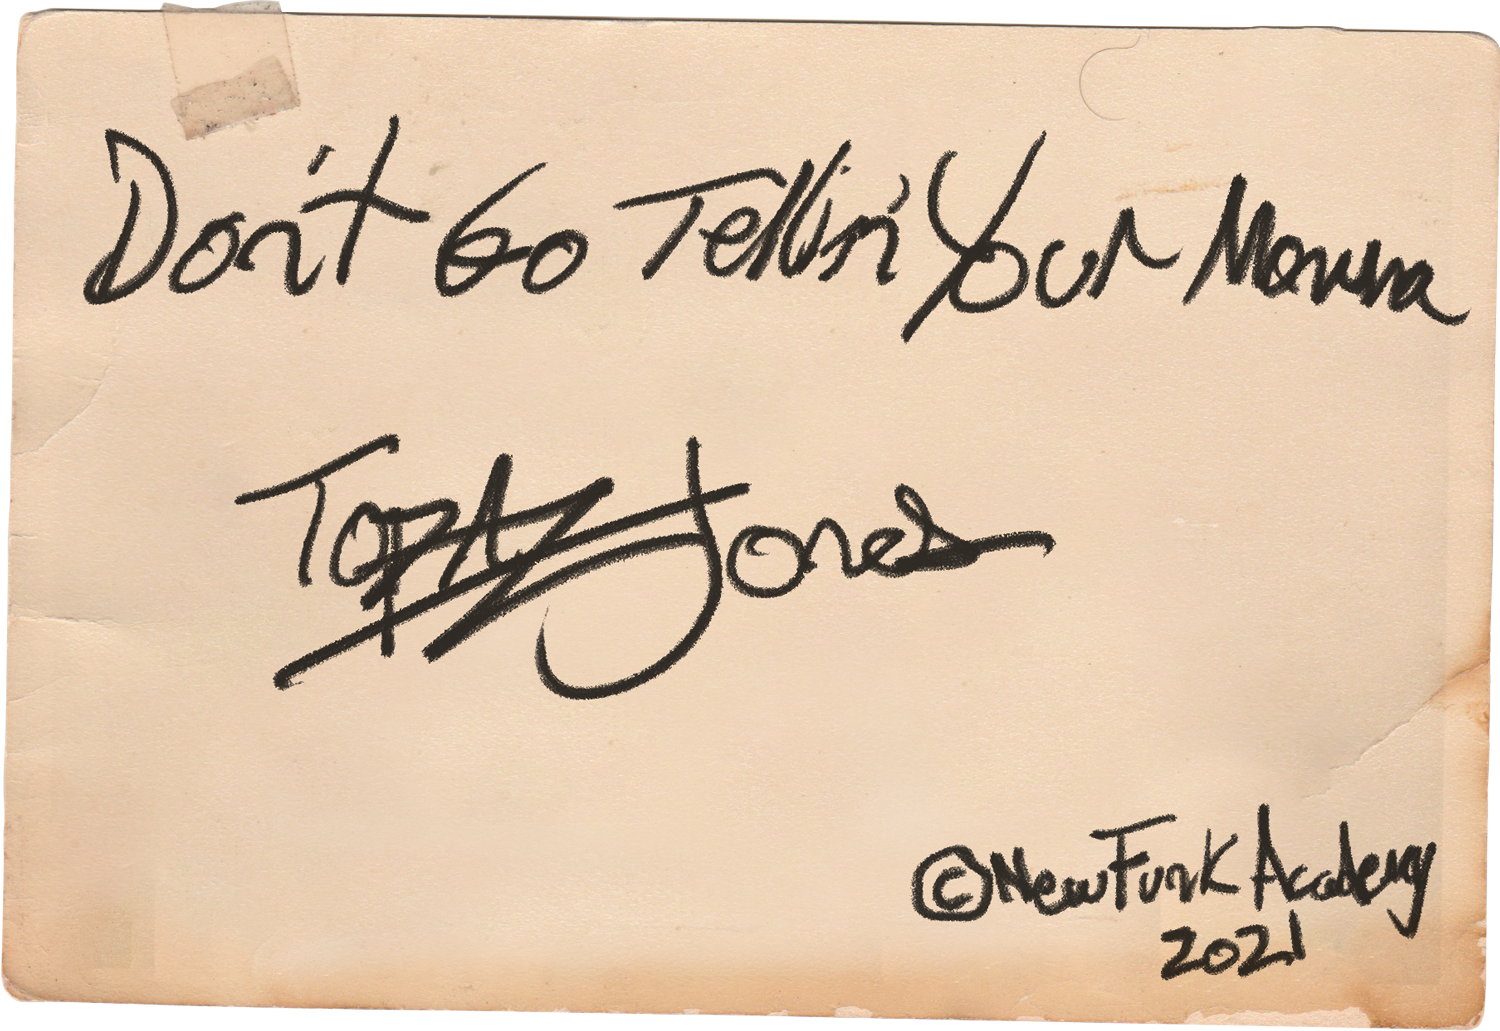 Don't Go Tellin' Your Momma
Topaz Jones
© New Funk Academy
2021